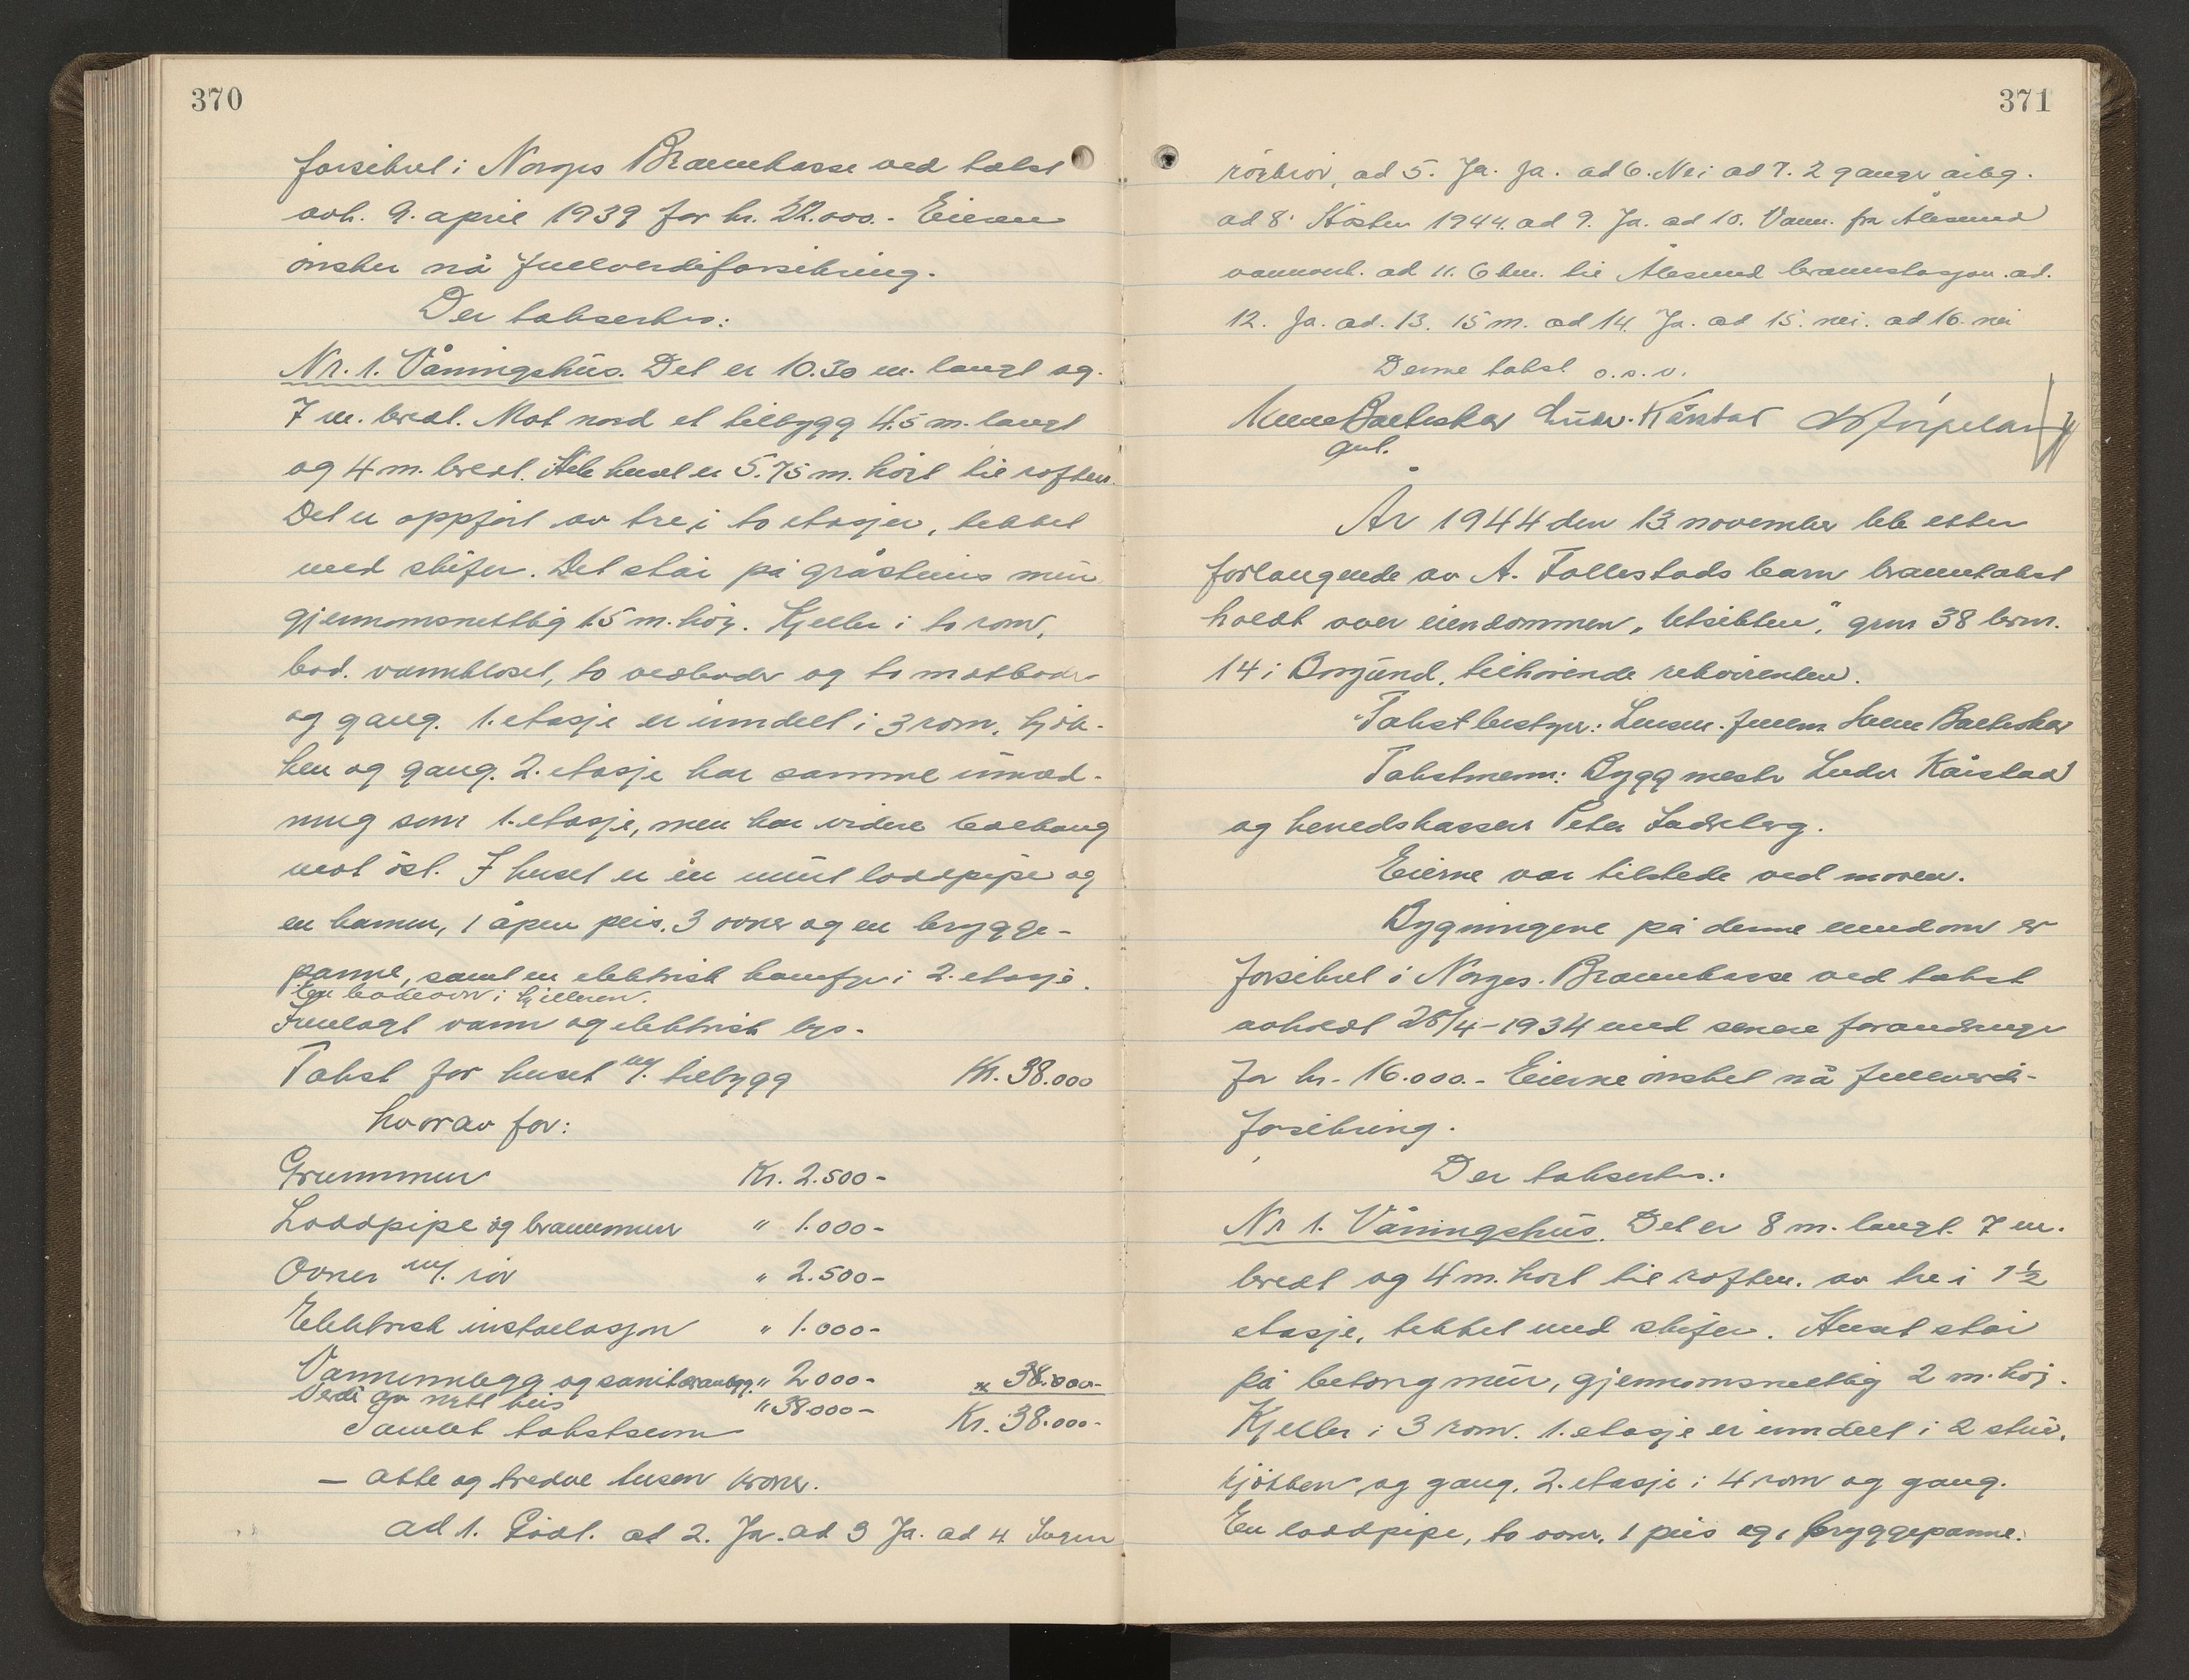 370
forsikret i Norges Brannkasse ved takst
avh. 9. april 1939 for kr. 22.000.- Eieren
ønsker nå fullverdiforsikring.
Der takseres:
Nr. 1. Våningshus. Det er 10.30 m. langt og
7 m. bredt. Mot nord et tilbygg 4.5 m. langt
og 4 m. bredt. Hele huset er 5.75 m. høit til røsten.
Det er oppført av tre i to etasjer, tekket
med skifer. Det står på gråsteins mur
gjennomsnettlig 1.5 m. høy. Kjeller i to rom,
bad. vannkloset, to vedboder og to matboder
og gang. 1. etasje er inndelt i 3 rom, kjøk-
ken og gang. 2. etasje har samme innred-
ning som 1. etasje, men har videre balkong
mot øst. I huset er én murt loddpipe og
en kamin, 1 åpen peis, 3 ovner og en brygge-
panne, samt en elektrisk komfyr i 2. etasje.
En badeovn i kjelleren.
Innlagt vann og elektrisk lys.
Takst for huset m/. tilbygg Kr. 38.000
hvorav for:
Grunnmur Kr. 2.500-
Loddpipe og brannmur " 1.000-
Ovner m/. rør " 2.500-
Elektrisk installasjon " 1.000-
Vanninnlegg og sanitæranlegg " 2000- " 38.000-
Verdi av nytt hus " 38.000-
Samlet takstsum Kr. 38.000-
— åtte og tredve tusen kroner.
ad 1. Godt. ad 2. Ja. ad 3 Ja. ad 4.
371
ad 5. Ja. Ja. ad 6. Nei ad 7. 2 ganger årlig.
ad 8. Høsten 1944. ad 9. Ja. ad 10. Vann. fra Ålesund
vannverk. ad 11. 6 km. til Ålesund brannstasjon. ad.
12. Ja. ad. 13. 15 m. ad 14. Ja. ad 15. nei. ad 16. nei
Denne takst o.s.v.
Ludv. Kårstad
År 1944 den 13. november ble etter
forlangende av A. Tollestads barn branntakst
holdt over eiendommen "Utsikten", gnr 38 brnr.
14 i Borgund, tilhørende rekvirenten.
Takstbestyrer: Lensm. fullm.
Takstmenn: Byggmester Ludv Kårstad
og herredskasserer Peter
Eierne var tilstede ved
Bygningene på denne eiendom er
forsikret i Norges Brannkasse ved takst
avholdt 28/4-1934 med senere forandringer
for kr. 16.000.- Eierne ønsket nå fullverdi-
forsikring.
Der takseres:
Nr 1. Våningshus. Det er 8 m. langt. 7 m.
bredt og 4 m. høit til røsten. av tre i 1½
etasje, tekket med skifer. Huset står
på betongmur, gjennomsnettlig 2 m. høy.
Kjeller i 3 rom. 1. etasje er inndelt i 2 stuer,
kjøkken og gang. 2. etasje i 4 rom og gang.
En loddpipe, to ovner, 1 peis og 1 bryggepanne.